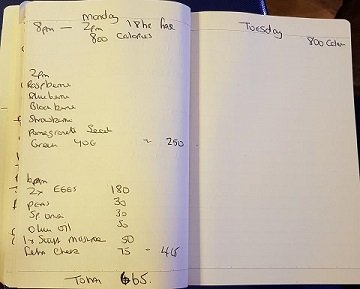 Monday
8pm — 2pm 18hr fast
800 Calories
2pm
Raspberries
Blueberries
Blackberries
Strawberries
Pomegranate Seeds
Greek YOG - 250
6pm
2x EGGS 180
peas 30
Sp onion 30
Olive oil 50
1x Swiss 50
Feta Cheese 75 - 415
Total 665.
Tuesday
800 Calories